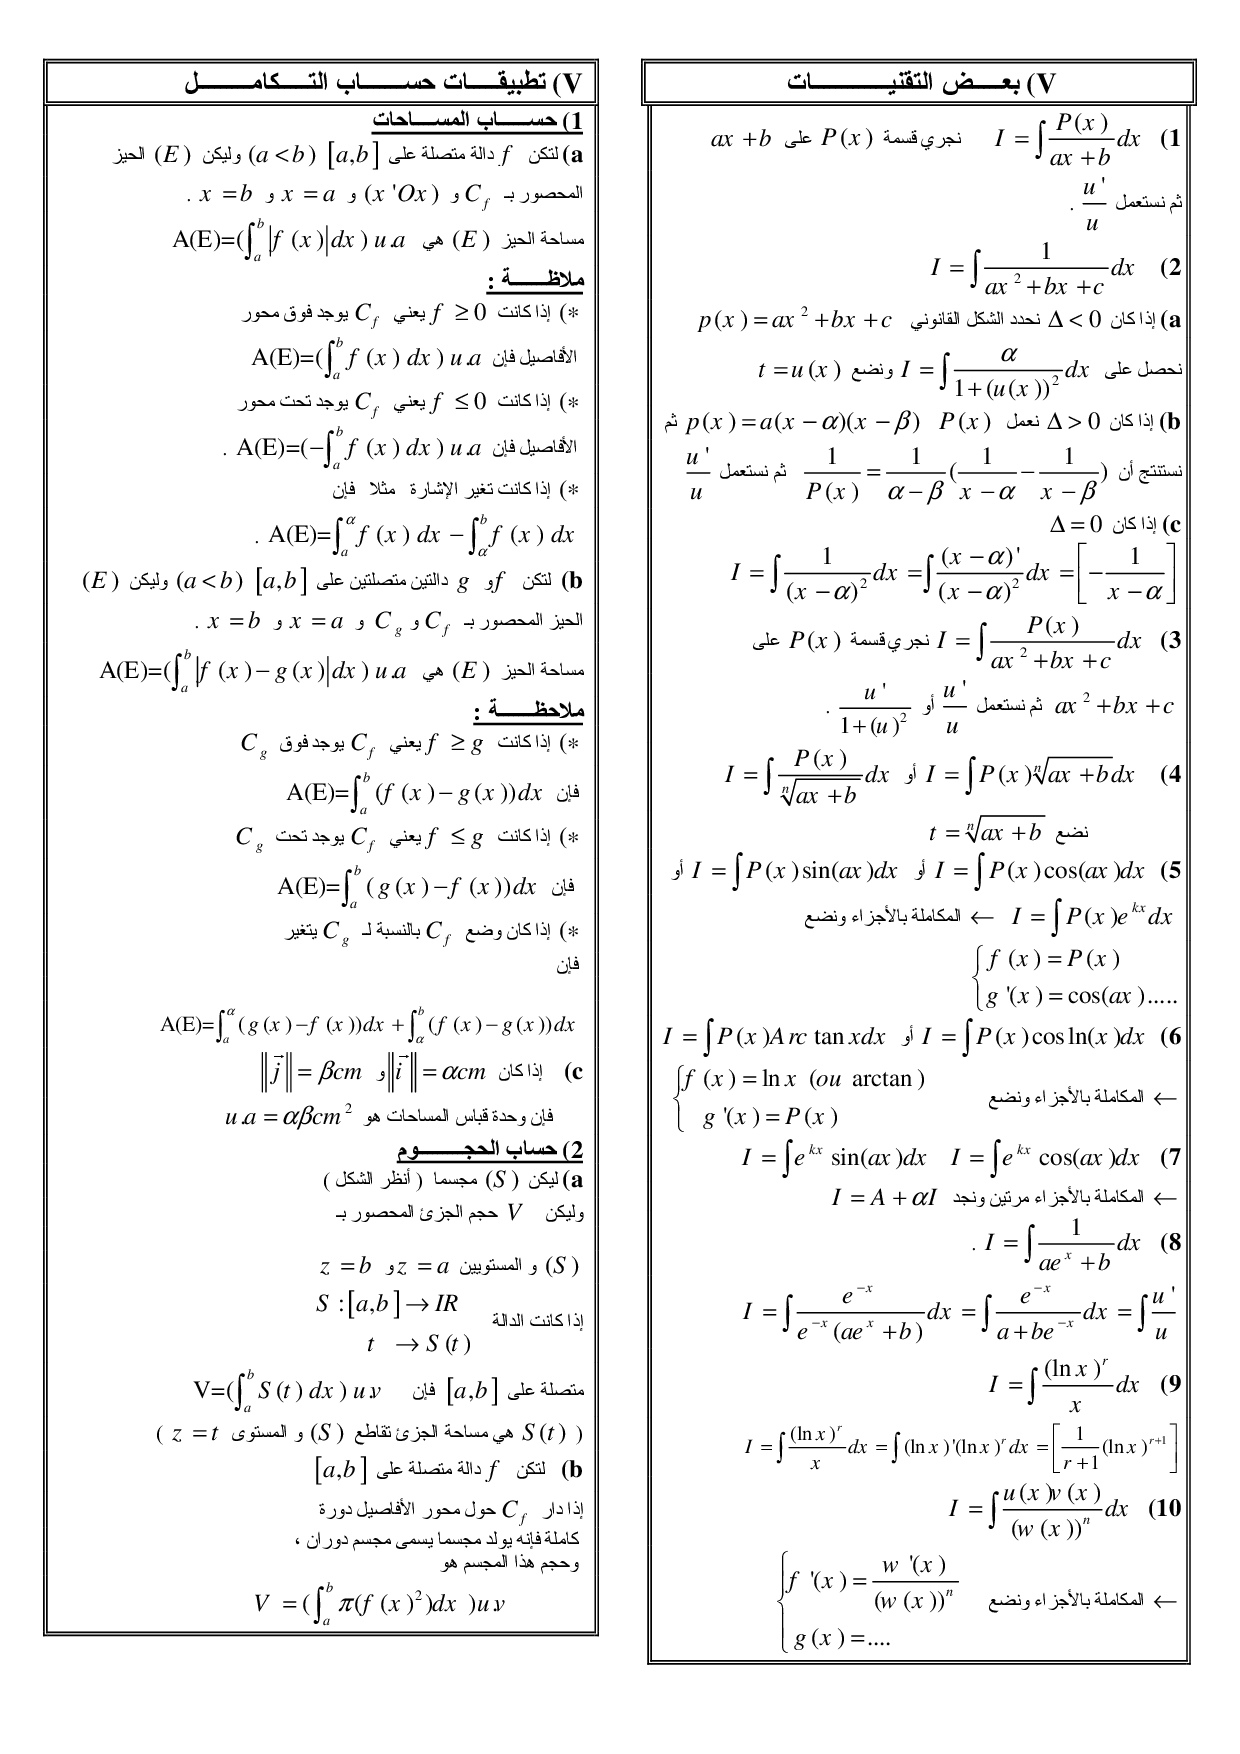 V) بعـــض التقنيـــــــــات
1) $I = \int \frac{P(x)}{ax+b}dx$ نجري قسمة $P(x)$ على $ax+b$
ثم نستعمل $\frac{u'}{u}$ .
2) $I = \int \frac{1}{ax^2+bx+c}dx$
a) إذا كان $\Delta < 0$ نحدد الشكل القانوني $p(x) = ax^2+bx+c$
نحصل على $I = \int \frac{\alpha}{1+(u(x))^2}dx$ ونضع $t = u(x)$
b) إذا كان $\Delta > 0$ نعمل $P(x)$ $p(x) = a(x-\alpha)(x-\beta)$ ثم
نستنتج أن $\frac{1}{P(x)} = \frac{1}{\alpha-\beta}(\frac{1}{x-\alpha} - \frac{1}{x-\beta})$ ثم نستعمل $\frac{u'}{u}$
c) إذا كان $\Delta = 0$
$I = \int \frac{1}{(x-\alpha)^2}dx = \int \frac{(x-\alpha)'}{(x-\alpha)^2}dx = \left[-\frac{1}{x-\alpha}\right]$
3) $I = \int \frac{P(x)}{ax^2+bx+c}dx$ نجري قسمة $P(x)$ على
$ax^2+bx+c$ ثم نستعمل $\frac{u'}{u}$ أو $\frac{u'}{1+(u)^2}$ .
4) $I = \int P(x)\sqrt[n]{ax+b}dx$ أو $I = \int \frac{P(x)}{\sqrt[n]{ax+b}}dx$
نضع $t = \sqrt[n]{ax+b}$
5) $I = \int P(x)\cos(ax)dx$ أو $I = \int P(x)\sin(ax)dx$ أو
$I = \int P(x)e^{kx}dx$ ← المكاملة بالأجزاء ونضع
$\begin{cases} f(x) = P(x) \\ g'(x) = \cos(ax)..... \end{cases}$
6) $I = \int P(x)\cos\ln(x)dx$ أو $I = \int P(x)Arc\tan xdx$
← المكاملة بالأجزاء ونضع $\begin{cases} f(x) = \ln x \ (ou \ \arctan) \\ g'(x) = P(x) \end{cases}$
7) $I = \int e^{kx}\cos(ax)dx$ $I = \int e^{kx}\sin(ax)dx$
← المكاملة بالأجزاء مرتين ونجد $I = A + \alpha I$
8) $I = \int \frac{1}{ae^x+b}dx$ .
$I = \int \frac{e^{-x}}{e^{-x}(ae^x+b)}dx = \int \frac{e^{-x}}{a+be^{-x}}dx = \int \frac{u'}{u}$
9) $I = \int \frac{(\ln x)^r}{x}dx$
$I = \int \frac{(\ln x)^r}{x}dx = \int (\ln x)'(\ln x)^r dx = \left[\frac{1}{r+1}(\ln x)^{r+1}\right]$
10) $I = \int \frac{u(x)v(x)}{(w(x))^n}dx$
← المكاملة بالأجزاء ونضع $\begin{cases} f'(x) = \frac{w'(x)}{(w(x))^n} \\ g(x) = .... \end{cases}$
V) تطبيقـــات حســـــاب التـــكامـــــــل
1) حســـــاب المســـــاحات
a) لتكن $f$ دالة متصلة على $[a,b]$ $(a<b)$ وليكن $(E)$ الحيز
المحصور بـ $C_f$ و $(x'Ox)$ و $x=a$ و $x=b$ .
مساحة الحيز $(E)$ هي $A(E)=(\int_a^b |f(x)|dx)u.a$
ملاظـــــــة :
*) إذا كانت $f \geq 0$ يعني $C_f$ يوجد فوق محور
الأفاصيل فإن $A(E)=(\int_a^b f(x)dx)u.a$
*) إذا كانت $f \leq 0$ يعني $C_f$ يوجد تحت محور
الأفاصيل فإن $A(E)=(-\int_a^b f(x)dx)u.a$ .
*) إذا كانت تغير الإشارة مثلا فإن
$A(E)=\int_a^\alpha f(x)dx - \int_\alpha^b f(x)dx$ .
b) لتكن $f$ و $g$ دالتين متصلتين على $[a,b]$ $(a<b)$ وليكن $(E)$
الحيز المحصور بـ $C_f$ و $C_g$ و $x=a$ و $x=b$ .
مساحة الحيز $(E)$ هي $A(E)=(\int_a^b |f(x)-g(x)|dx)u.a$
ملاحظـــــــة :
*) إذا كانت $f \geq g$ يعني $C_f$ يوجد فوق $C_g$
فإن $A(E)=\int_a^b (f(x)-g(x))dx$
*) إذا كانت $f \leq g$ يعني $C_f$ يوجد تحت $C_g$
فإن $A(E)=\int_a^b (g(x)-f(x))dx$
*) إذا كان وضع $C_f$ بالنسبة لـ $C_g$ يتغير
فإن
$A(E)=\int_a^\alpha (g(x)-f(x))dx + \int_\alpha^b (f(x)-g(x))dx$
c) إذا كان $\|\vec{i}\| = \alpha cm$ و $\|\vec{j}\| = \beta cm$
فإن وحدة قباس المساحات هو $u.a = \alpha\beta cm^2$
2) حساب الحجـــــــوم
a) ليكن $(S)$ مجسما ( أنظر الشكل )
وليكن $V$ حجم الجزئ المحصور بـ
$(S)$ و المستويين $z=a$ و $z=b$
إذا كانت الدالة $S:[a,b] \to IR$
$t \to S(t)$
متصلة على $[a,b]$ فإن $V=(\int_a^b S(t)dx)u.v$
( $S(t)$ هي مساحة الجزئ تقاطع $(S)$ و المستوى $z=t$ )
b) لتكن $f$ دالة متصلة على $[a,b]$
إذا دار $C_f$ حول محور الأفاصيل دورة
كاملة فإنه يولد مجسما يسمى مجسم دوران ،
وحجم هذا المجسم هو
$V = (\int_a^b \pi(f(x)^2)dx)u.v$